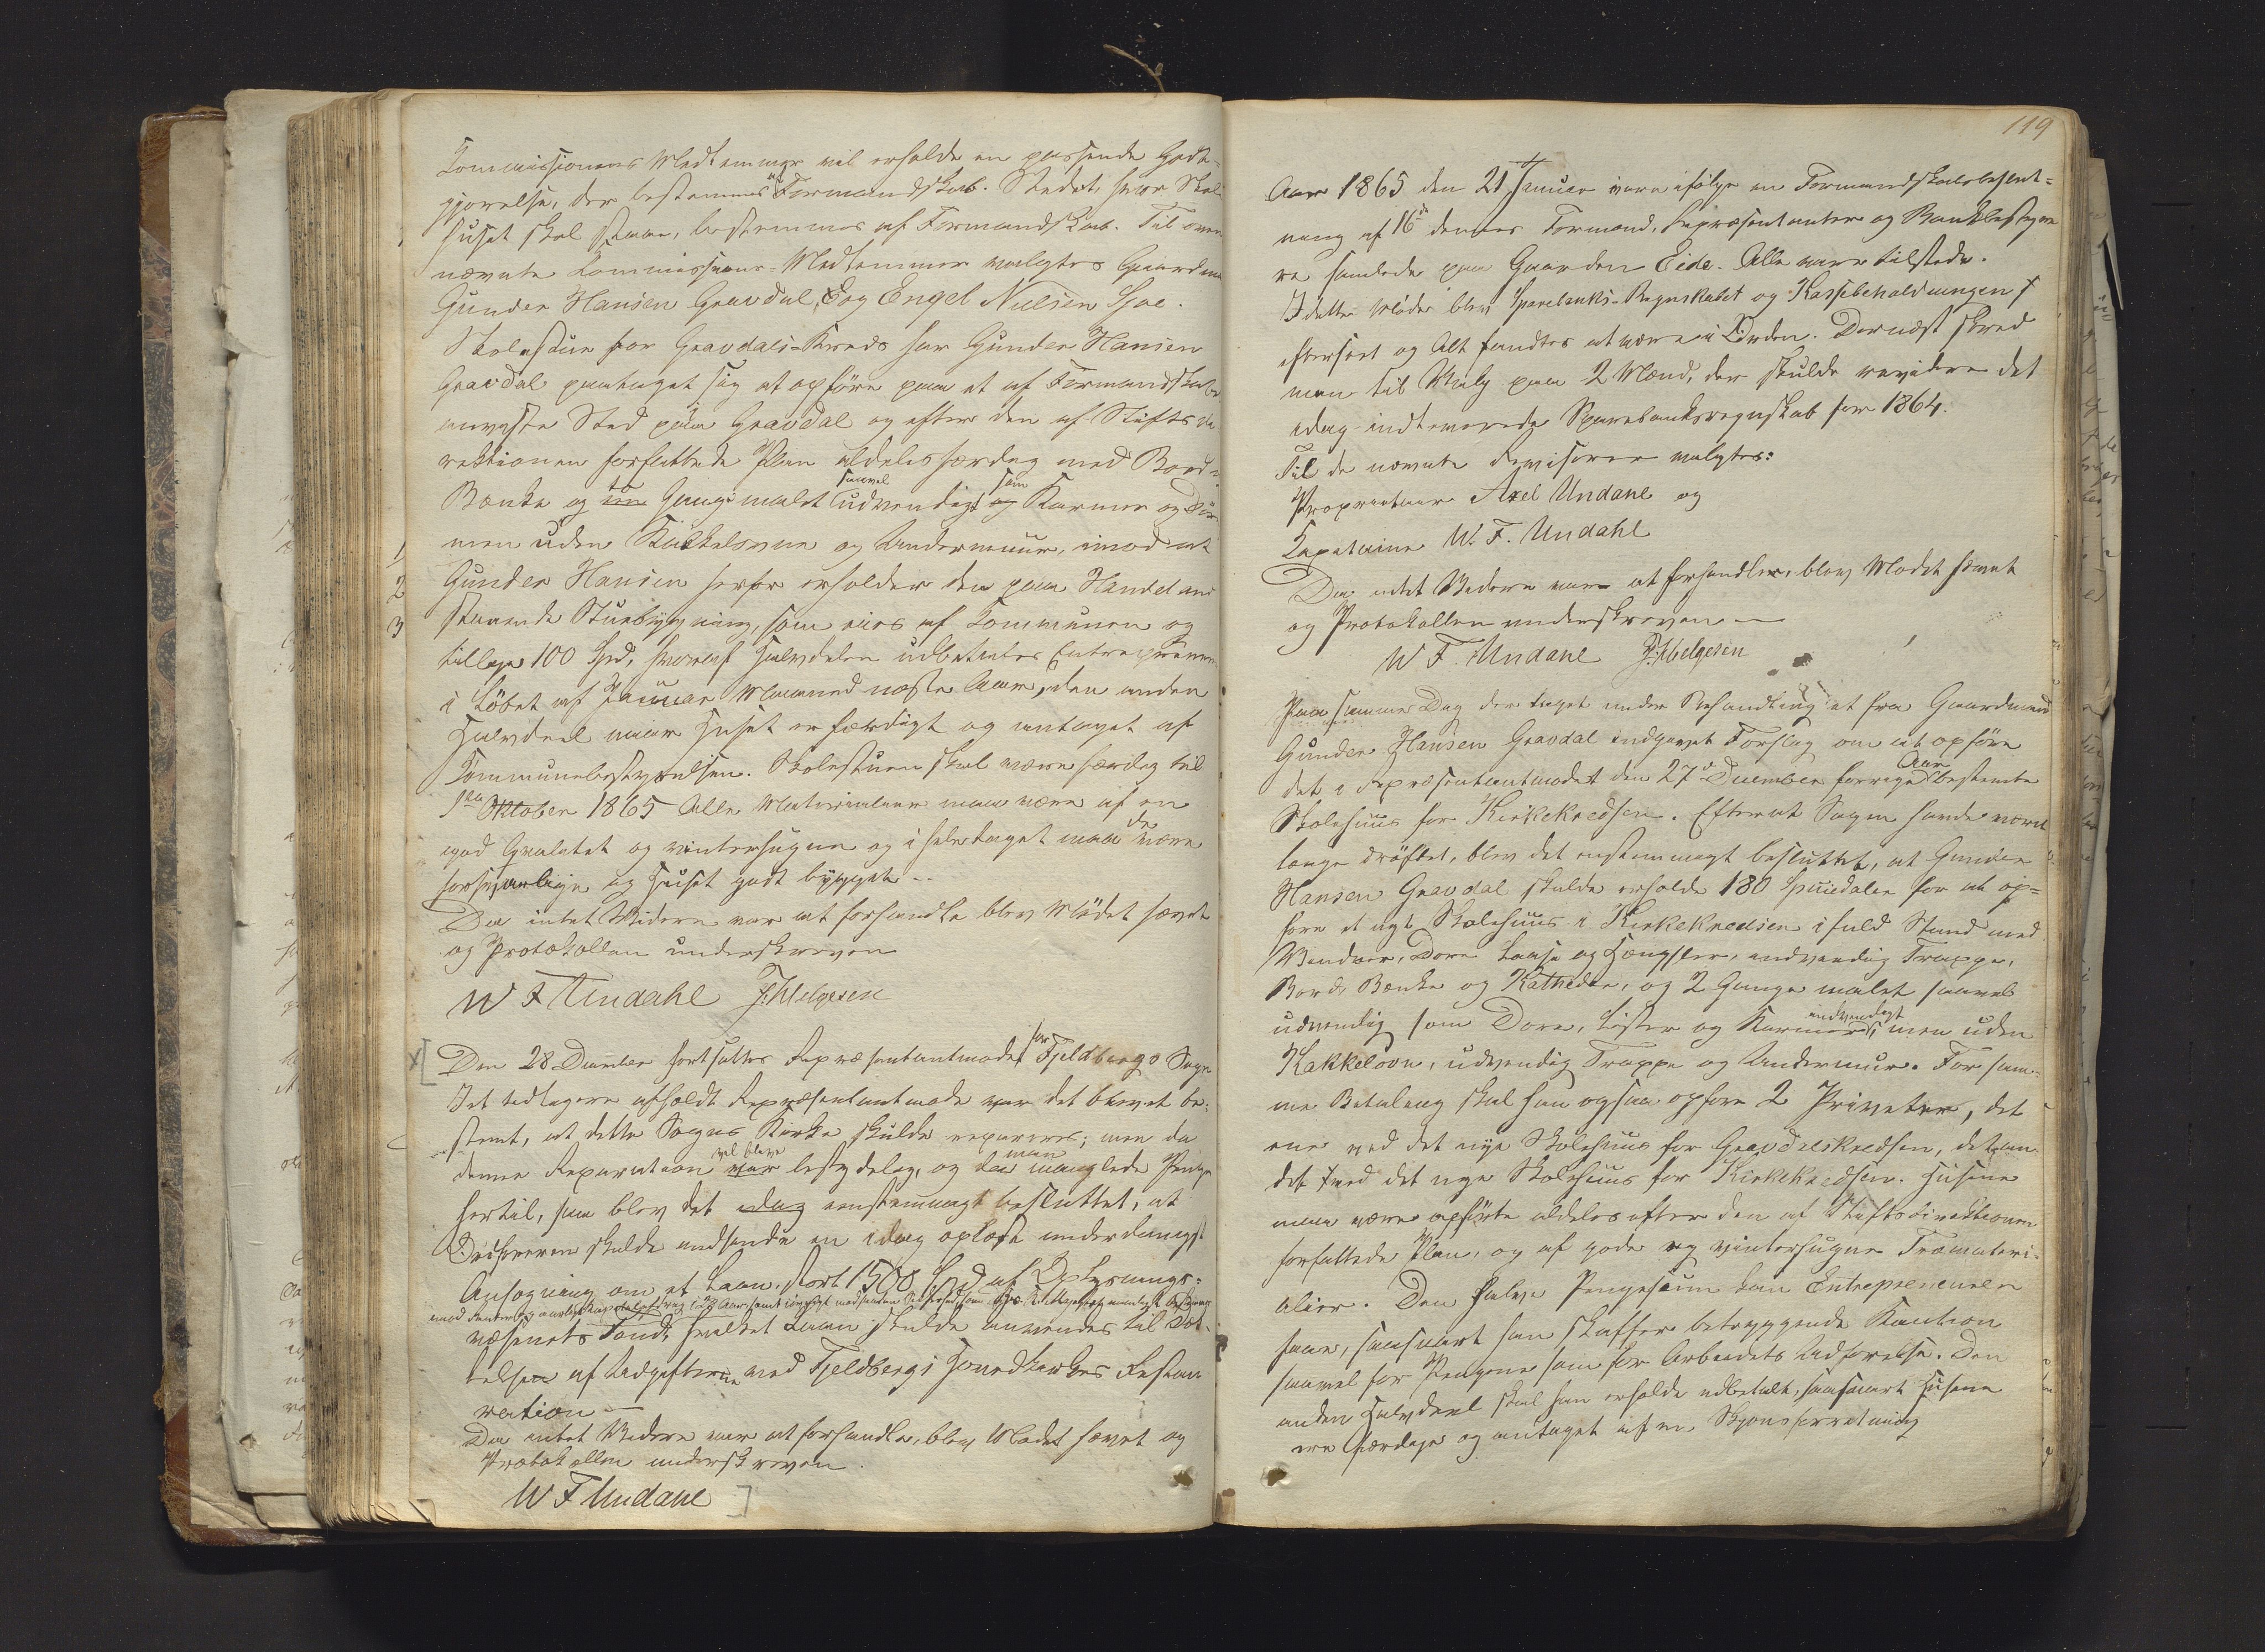 Commissionens Medlemmer vil erholde en passende Godt-
gjørelse, der bestemmes af Formandskab. Stedet, hvor Skole
huset skal staae, bestemmes af Formandskab. Til oven
nævnte Kommissions-Medlemmer valgtes Gaardmænd
Gunder Hansen Gravdal, og Engel Nielsen Sjoe.
Skolestue for Gravdals-Kreds har Gunder Hansen
Gravdal paataget sig at opføre paa et af Formandskabet
anviste Sted paa Gravdal og efter den af Stiftsdi
rektionen forfattede Plan aldeles færdig med Bord-
Bænke og een to Gange malet saavel udvendigt og som Karmer og Dør
men uden Kakkelovne og Undermuur, imod at
1
2
3
Gunder Hansen herfor erholder den paa Handeland
staaende Stuebygning, som eies af Kommunen og
tillige 100 Spd, hvoraf Halvdelen udbetales Entreprenøren
i Løbet af Januar Maaned næste Aar, den anden
Halvdeel naar Huset er færdigt og antaget af
Kommunebestyrelsen. Skolestuen skal være færdig til
1ste Oktober 1865 Alle Materialier maa være af en
god Qvalitet og vinterhugne og i heletaget maa de være
forsvarlige og Huset godt bygget.-
Da intet Videre var at forhandle blev Mødet hævet
og Protokollen underskreven
W F Undahl J. Helgesen
Den 28 December fortsattes Repræsentantmødet for Fjeldbergs Sogn
I et tidligere afholdt Repræsentantmøde var det blevet be-
stemt, at dette Sogns Kirke skulde repareres; men da
denne Reparation var vil blive betydelig, og da man manglede Penge
hertil, saa blev det idag eenstemmigt besluttet, at
Ordføreren skulde indsende en idag oplæst underdanigst
Ansøgning om et Laan, stort 1500 Spd af Oplysnings-
væsenets Fond, hvilket Laan skulde anvendes til Dæk-
kelsen af Udgifterne ved Fjeldbergs Hovedkirkes Restau
ration -
Da intet Videre var at forhandle, blev Mødet hævet og
Protokollen underskreven.
W F Undahl
119
Aar 1865 den 21 Januar vare ifølge en Formandskabsbeslut-
ning af 16de dennes Formænd, Repræsentanter og Bankbestyre
re samlede paa Gaarden Eide. Alle vare tilstede.
I dette Møde blev Sparebanks-Regnskabet og Kassebeholdningen
efterseet og Alt fandtes at være i Orden. Dernæst skred
man til Valg paa 2 Mænd, der skulde revidere det
idag indleverede Sparebanksregnskab for 1864.
Til de nævnte Revisorer valgtes:
Proprietair Axel Undahl og
Kapetaine W. F. Undahl
Da intet Videre var at forhandle, blev Mødet hævet
og Protokollen underskreven -
W F. Undahl J. Helgesen
Paa samme Dag blev taget under Behandling et fra Gaardmand
Gunder Hansen Gravdal indgivet Forslag om at opføre
det i Repræsentantmødet den 27de December forrige Aar bestemte
Skolehuus for Kirkekredsen. Efterat Sagen havde været
længe drøftet, blev det enstemmigt besluttet, at Gunder
Hansen Gravdal skulde erholde 180 Speciedaler for at op-
føre et nyt Skolehuus i Kirkekredsen i fuld Stand med
Vinduer, Døre Laase og Hængsler, indvendig Trappe,
Bord, Bænke og Katheder, og 2 Gange malet saavel
udvendig som Døre, Lister og Karmer indvendigt, men uden
Kakkelovn, udvendig Trappe og Undermur. For sam-
me Betaling skal han ogsaa opføre 2 Priveter, det
ene ved det nye Skolehuus for Gravdalskredsen, det an-
det ved det nye Skolehuus for Kirkekredsen. Husene
maa være opførte aldeles efter den af Stiftsdirektionen
forfattede Plan, og af gode og vinterhugne Træmateri-
alier. Den halve Pengesum kan Entrepreneuren
faae, saasnart han skaffer betryggende Kaution
saavel for Pengene som for Arbeidets Udførelse. Den
anden Halvdeel skal han erholde udbetalt, saasnart Husene
ere færdige og antaget af en Skjønsforretning